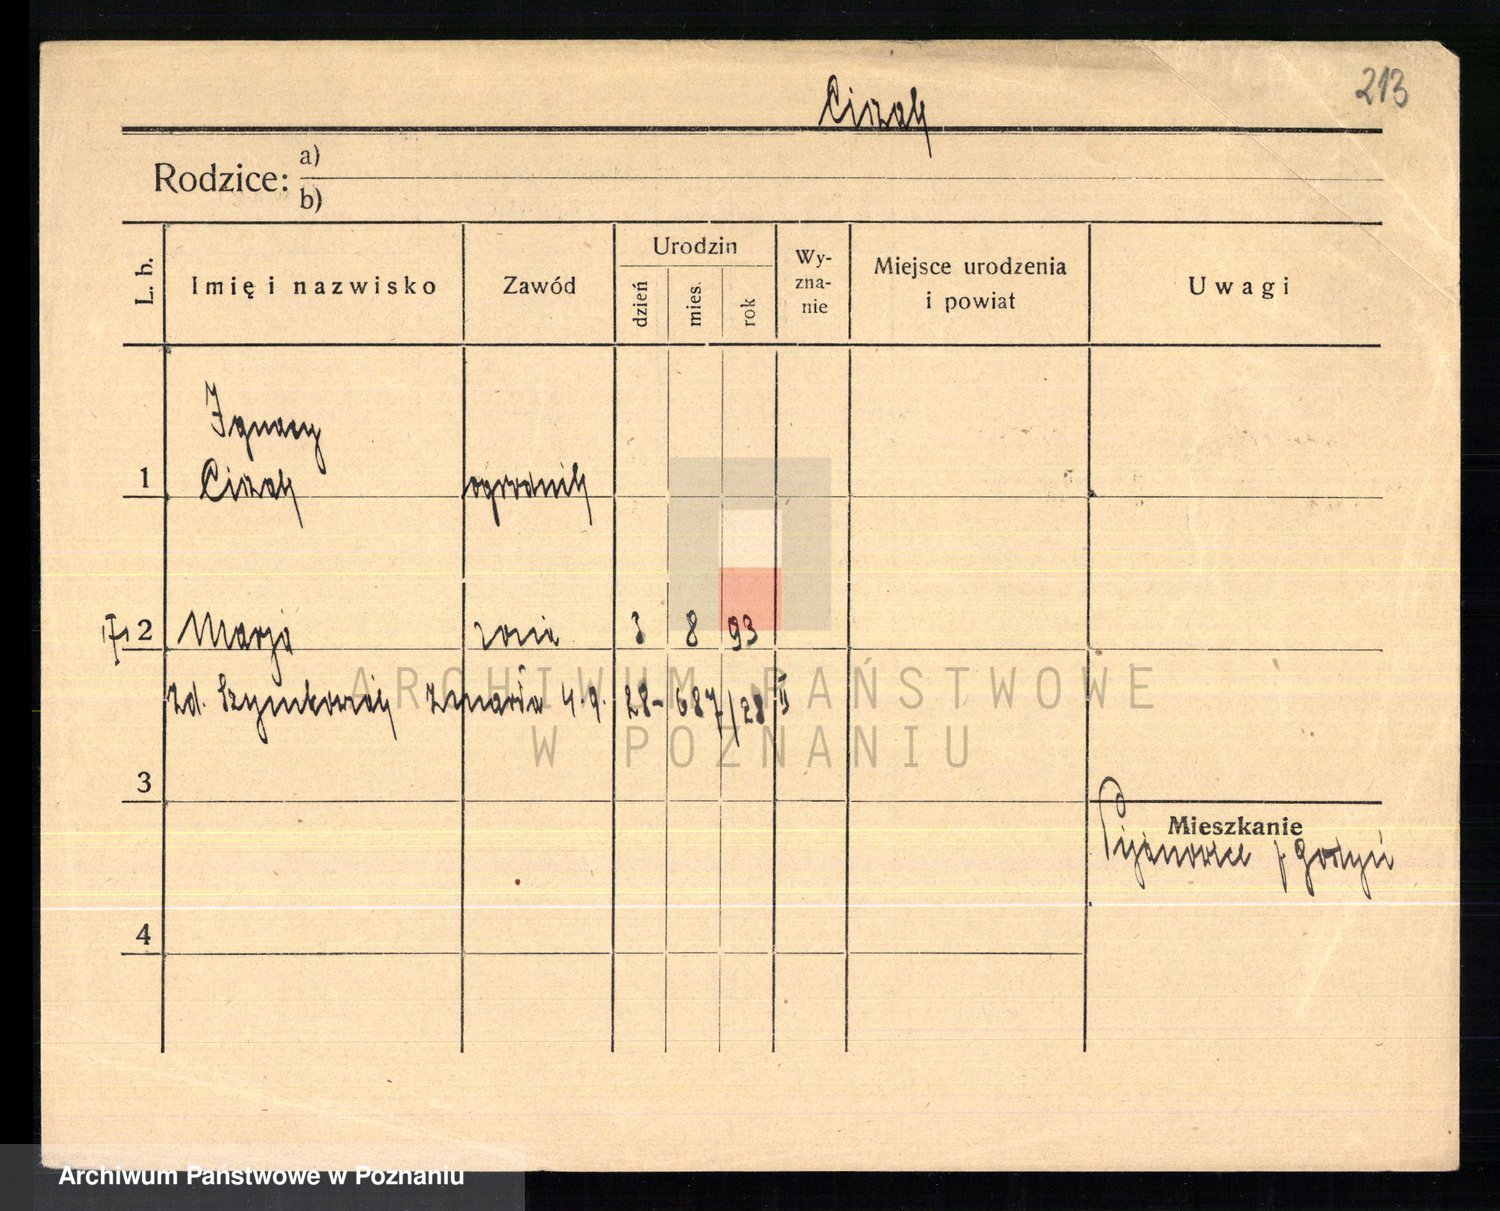 213
Ciszak
Rodzice: a)
b)
L. b.
Imię i nazwisko
Zawód
Urodzin
dzień
mies.
rok
Wy-
zna-
nie
Miejsce urodzenia
i powiat
Uwagi
Ignacy
1 Ciszak ogrodnik
2 Marja żona 3 8 93
zd. Szymkowiak zmarła 4.9. 28 - 687/28 II
ARCHIWUM PAŃSTWOWE
W POZNANIU
3
Mieszkanie
Pijanowice p. Gostyń
4
Archiwum Państwowe w Poznaniu